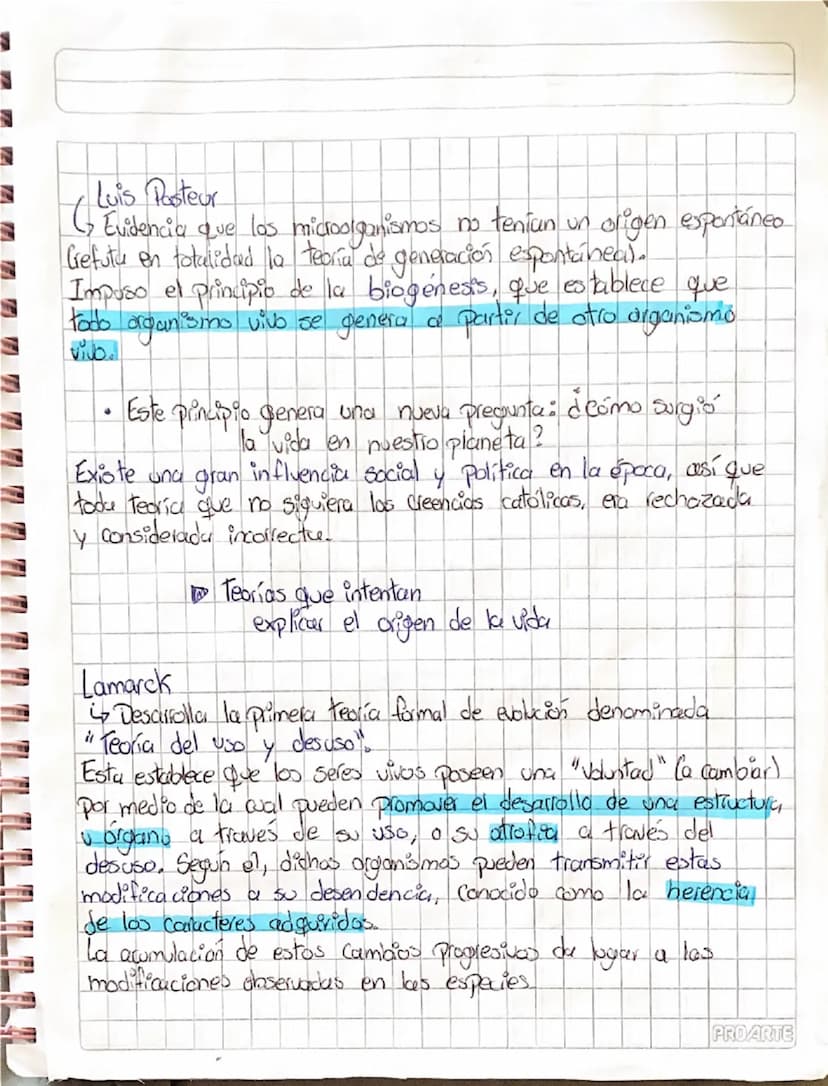 Luis Pasteur
↳ Evidencia que los microorganismos no tenían un origen espontáneo
(refuta en totalidad la teoría de generación espontánea).
Impuso el principio de la biogénesis, que establece que
todo organismo vivo se genera a partir de otro organismo
vivo.
• Este principio genera una nueva pregunta: ¿Cómo surgió
la vida en nuestro planeta?
Existe una gran influencia social y política en la época, así que
toda teoría que no siguiera las creencias católicas, era rechazada
y considerada incorrecta.
Teorías que intentan
explicar el origen de la vida
Lamarck
↳ Desarrolla la primera teoría formal de evolución denominada
"Teoría del uso y desuso".
Esta establece que los seres vivos poseen una "voluntad" (a cambiar)
por medio de la cual pueden promover el desarrollo de una estructura
u órgano a través de su uso, o su atrofia a través del
desuso. Según él, dichos organismos pueden transmitir estas
modificaciones a su desendencia, conocido como la herencia
de los caracteres adquiridos.
La acumulación de estos cambios progresivos da lugar a las
modificaciones observadas en las especies
PROARTE